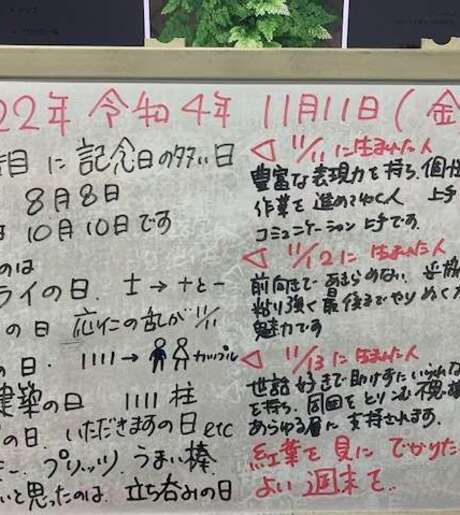 22年 令和4年 11月11日(金
目 に 記念日の多い日
8月8日
は 10月10日です
のは
ライの日. 士 → +と−
の日 応仁の乱が 11/11
の日. 1111 → カップル
建築の日 1111 柱
の日. いただきますの日 etc
プリッツ. うまい棒.
いと思ったのは. 立ち呑みの日
◁ 11/11 に生まれた人
豊富な表現力を持ち、個性
作業を進めてゆく人 上手
コミュニケーション上手です.
◁ 11/12 に生まれた人
前向きで あきらめない
粘り強く最後までやりぬく力
魅力です
◁ 11/13 に生まれた人
世話好きで助けずにいられな
を持ち. 周囲をとりこむ不思議
あらゆる層に支持されます.
紅葉を見に でかけた
よい 週末を.